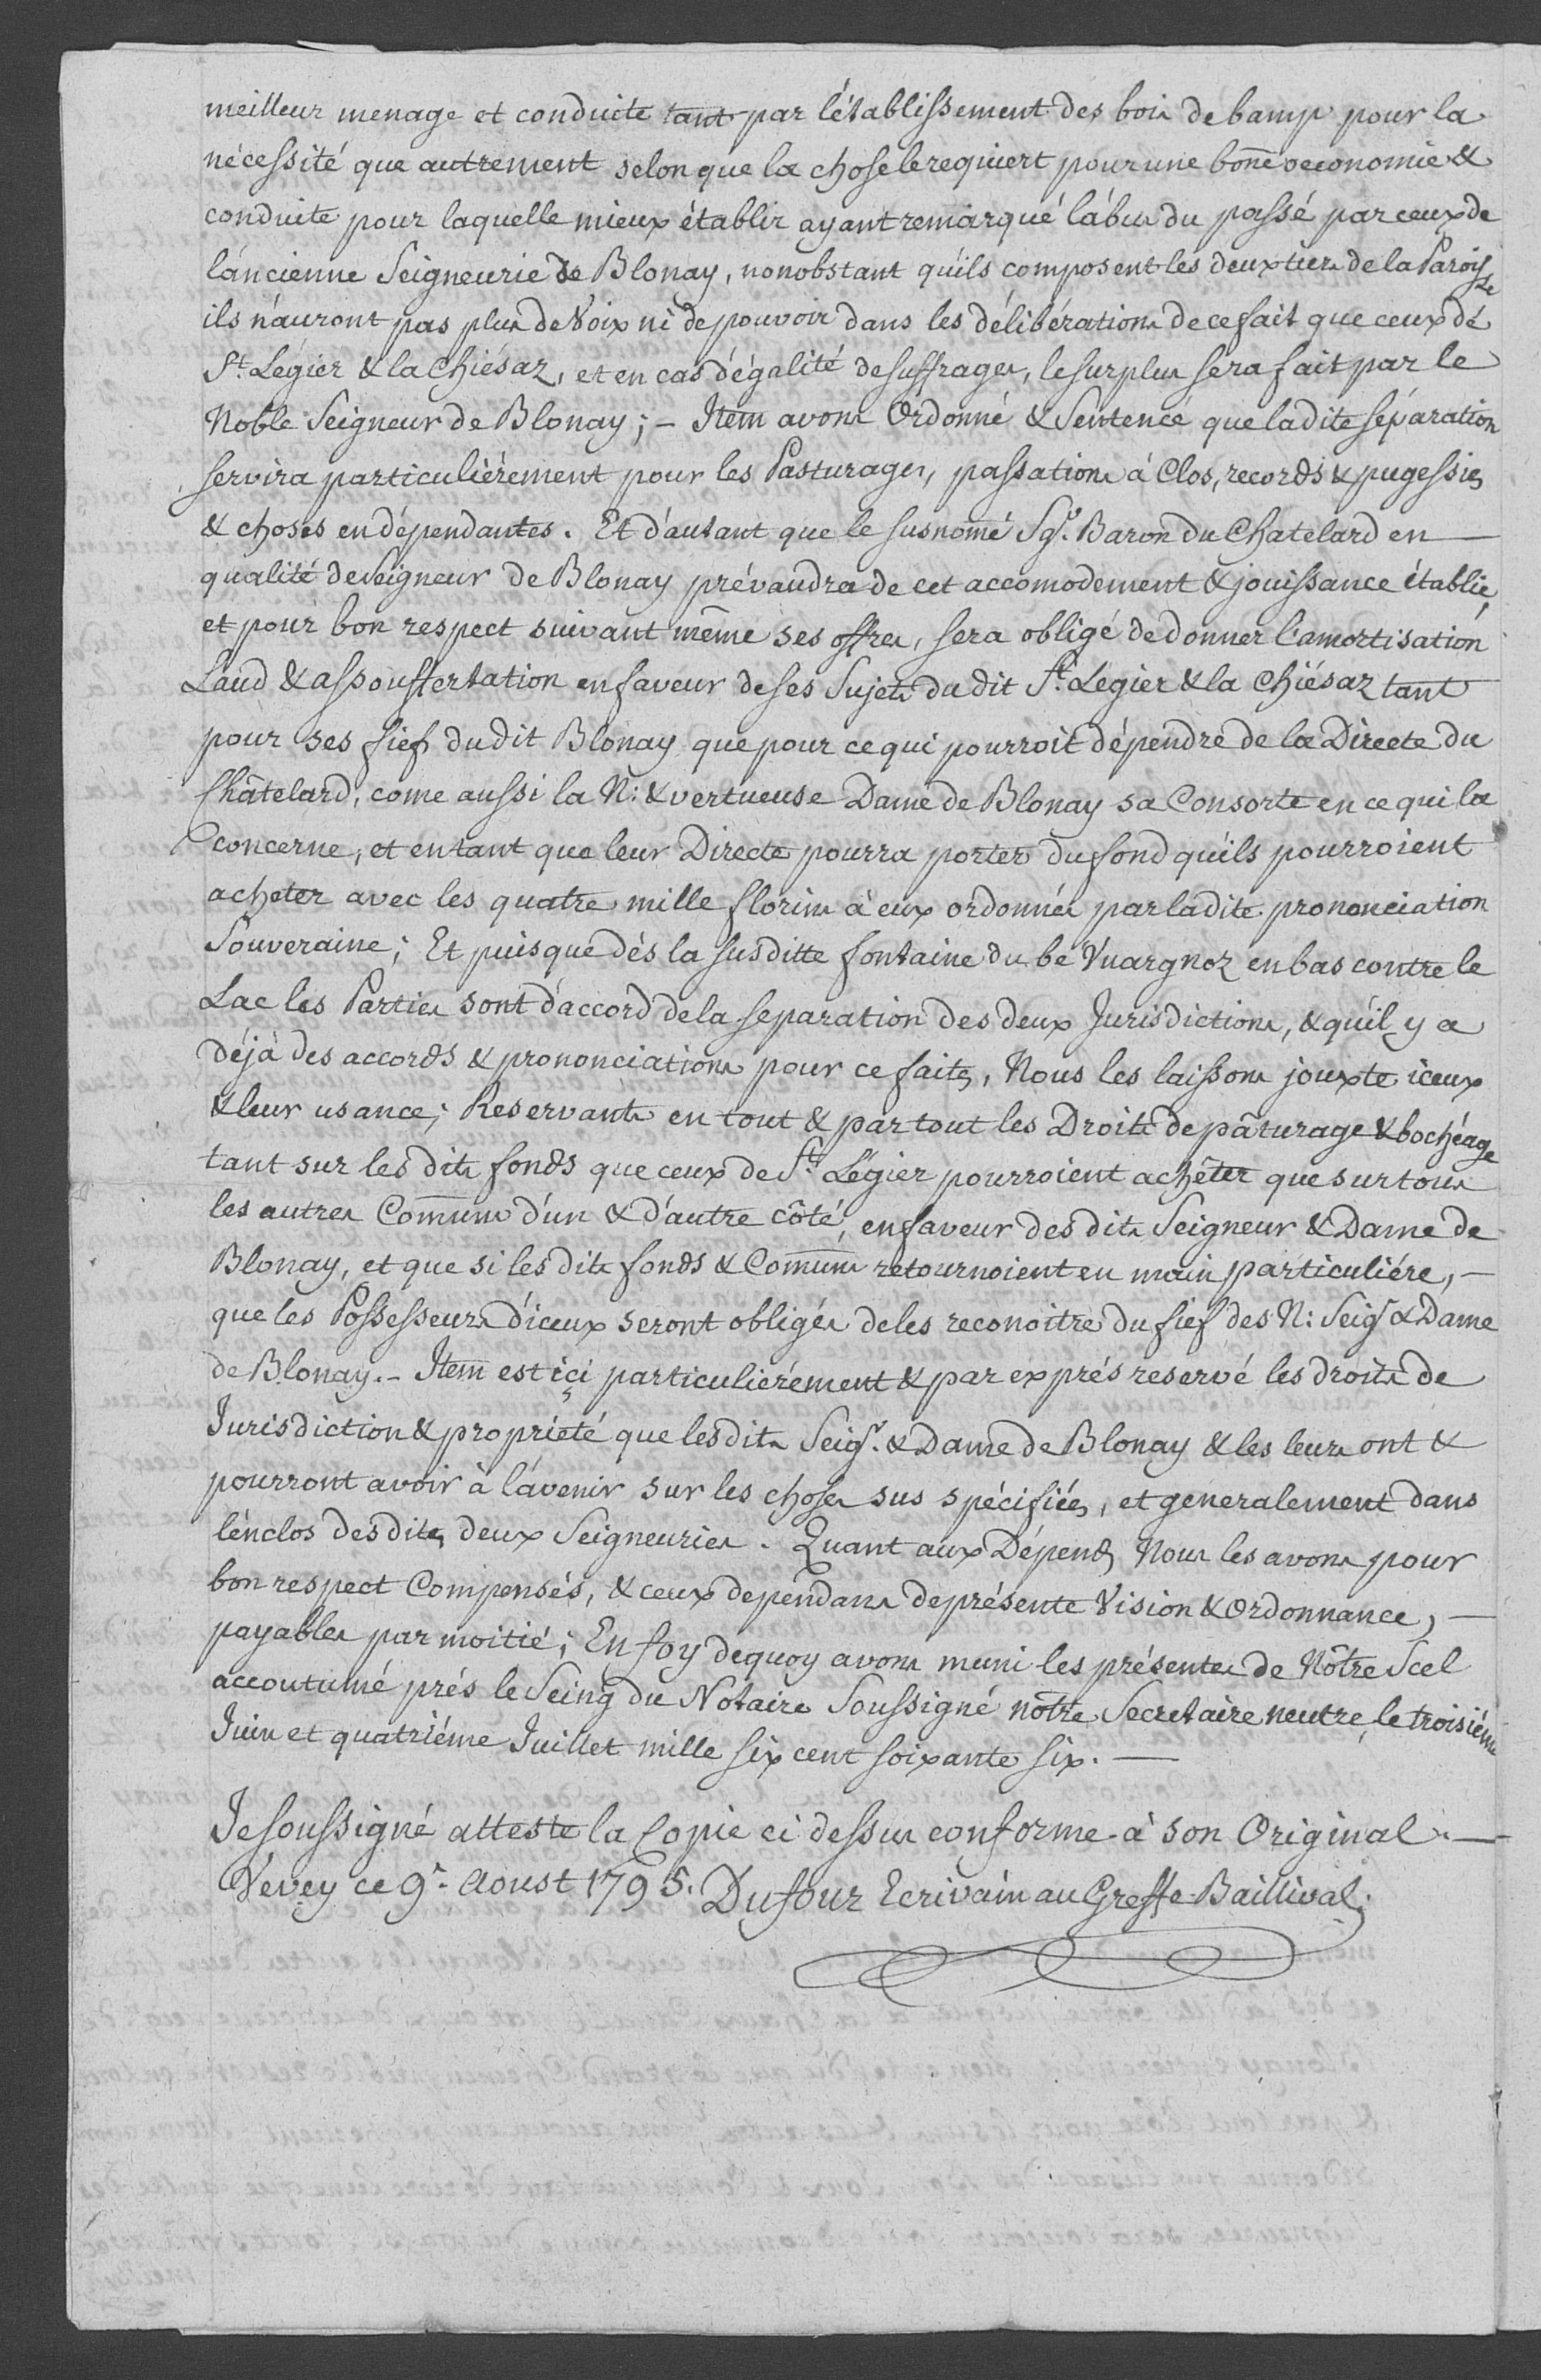 meilleur menage et conduite tant par l'établissement des bois de bamp pour la
nécessité que autrement selon que la chose le requiert pour une bone oeconomie &
conduite pour laquelle mieux établir ayant remarqué l'abus du passé par ceux de
l'ancienne Seigneurie de Blonay, nonobstant qu'ils composent les deux tiers de la Paroisse
ils n'auront pas plus de Voix ni de pouvoir dans les délibérations de ce fait que ceux de
St. Légier & la Chiésaz, et en cas d'égalité de suffrages, le surplus sera fait par le
Noble Seigneur de Blonay; - Item avons Ordonné & Sentencé que ladite séparation
servira particuliérement pour les Pasturages, passations à Clos, records & pugessies
& choses en dépendantes. Et d'autant que le susnomé Sgr. Baron du Chatelard en
qualité de Seigneur de Blonay prévaudra de cet accomodement & jouissance établie,
et pour bon respect suivant même ses offres, sera obligé de donner l'amortisation
Laud & assouffertation en faveur de ses Sujets du dit St. Légier & la Chiésaz tant
pour ses fiefs dudit Blonay que pour ce qui pourroit dépendre de la Directe du
Châtelard, come aussi la N: & vertueuse Dame de Blonay sa Consorte en ce qui la
concerne, et entant que leur Directe pourra porter du fond qu'ils pourroient
acheter avec les quatre mille florins à eux ordonnés par ladite prononciation
Souveraine; Et puisque dés la susditte fontaine du be Vuargnoz en bas contre le
Lac les Parties sont d'accord de la separation des deux Jurisdictions, & qu'il y a
déjà des accords & prononciations pour ce faites, Nous les laissons jouxte iceux
& leur usance; Reservants en tout & par tout les Droits de pâturage & bochéage
tant sur les dits fonds que ceux de St. Légier pourroient achêter que sur tous
les autres Comuns d'un & d'autre côté, en faveur des dits Seigneur & Dame de
Blonay, et que si les dits fonds & Comuns retournoient en main particuliére, -
que les Possesseurs d'iceux seront obligés de les reconoitre du fief des N: Seigr. & Dame
de Blonay. - Item est içi particuliérément & par exprés reservé les droits de
Jurisdiction & propriété que les dits Seigr. & Dame de Blonay & les leurs ont &
pourront avoir à l'avenir sur les choses sus spécifiées, et generalement dans
l'énclos desdites deux Seigneuries. Quant aux Dépends Nous les avons pour
bon respect Compensés, & ceux dependans de présente Vision & Ordonnance, -
payables par moitié; En foy dequoy avons muni les présentes de Nôtre Scel
accoutumé prés le Seing du Notaire Soussigné nôtre Secretaire neutre, le troisiéme
Juin et quatriéme Juillet mille six cent soixante six. -
Je soussigné atteste la Copie ci dessus conforme à son Original. -
Vevey ce 9e. Aoust 1795. Dufour Ecrivain au Greffe Baillival.